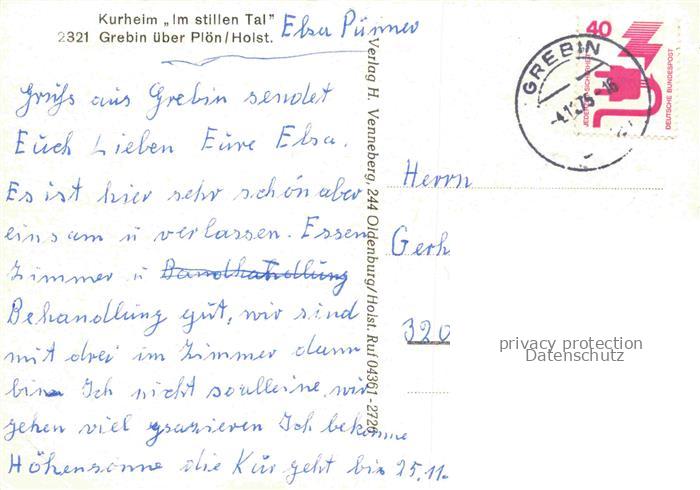 Kurheim „Im stillen Tal"
2321 Grebin über Plön/Holst.
Elsa Pünner
Gruß aus Grebin sendet
Euch Lieben Eure Elsa.
Es ist hier sehr schön aber
einsam u verlassen. Essen
Zimmer u
Behandlung gut, wir sind
mit drei im Zimmer dann
bin Ich nicht so alleine, wir
gehen viel spazieren Ich bekomme
Höhensonne die Kur geht bis 25.11.
Verlag H. Venneberg, 244 Oldenburg/Holst. Ruf 04361-2726
40
JEDERZEIT SICHERHEIT
DEUTSCHE BUNDESPOST
GREBIN
Herrn
Gerh
320
privacy protection
Datenschutz